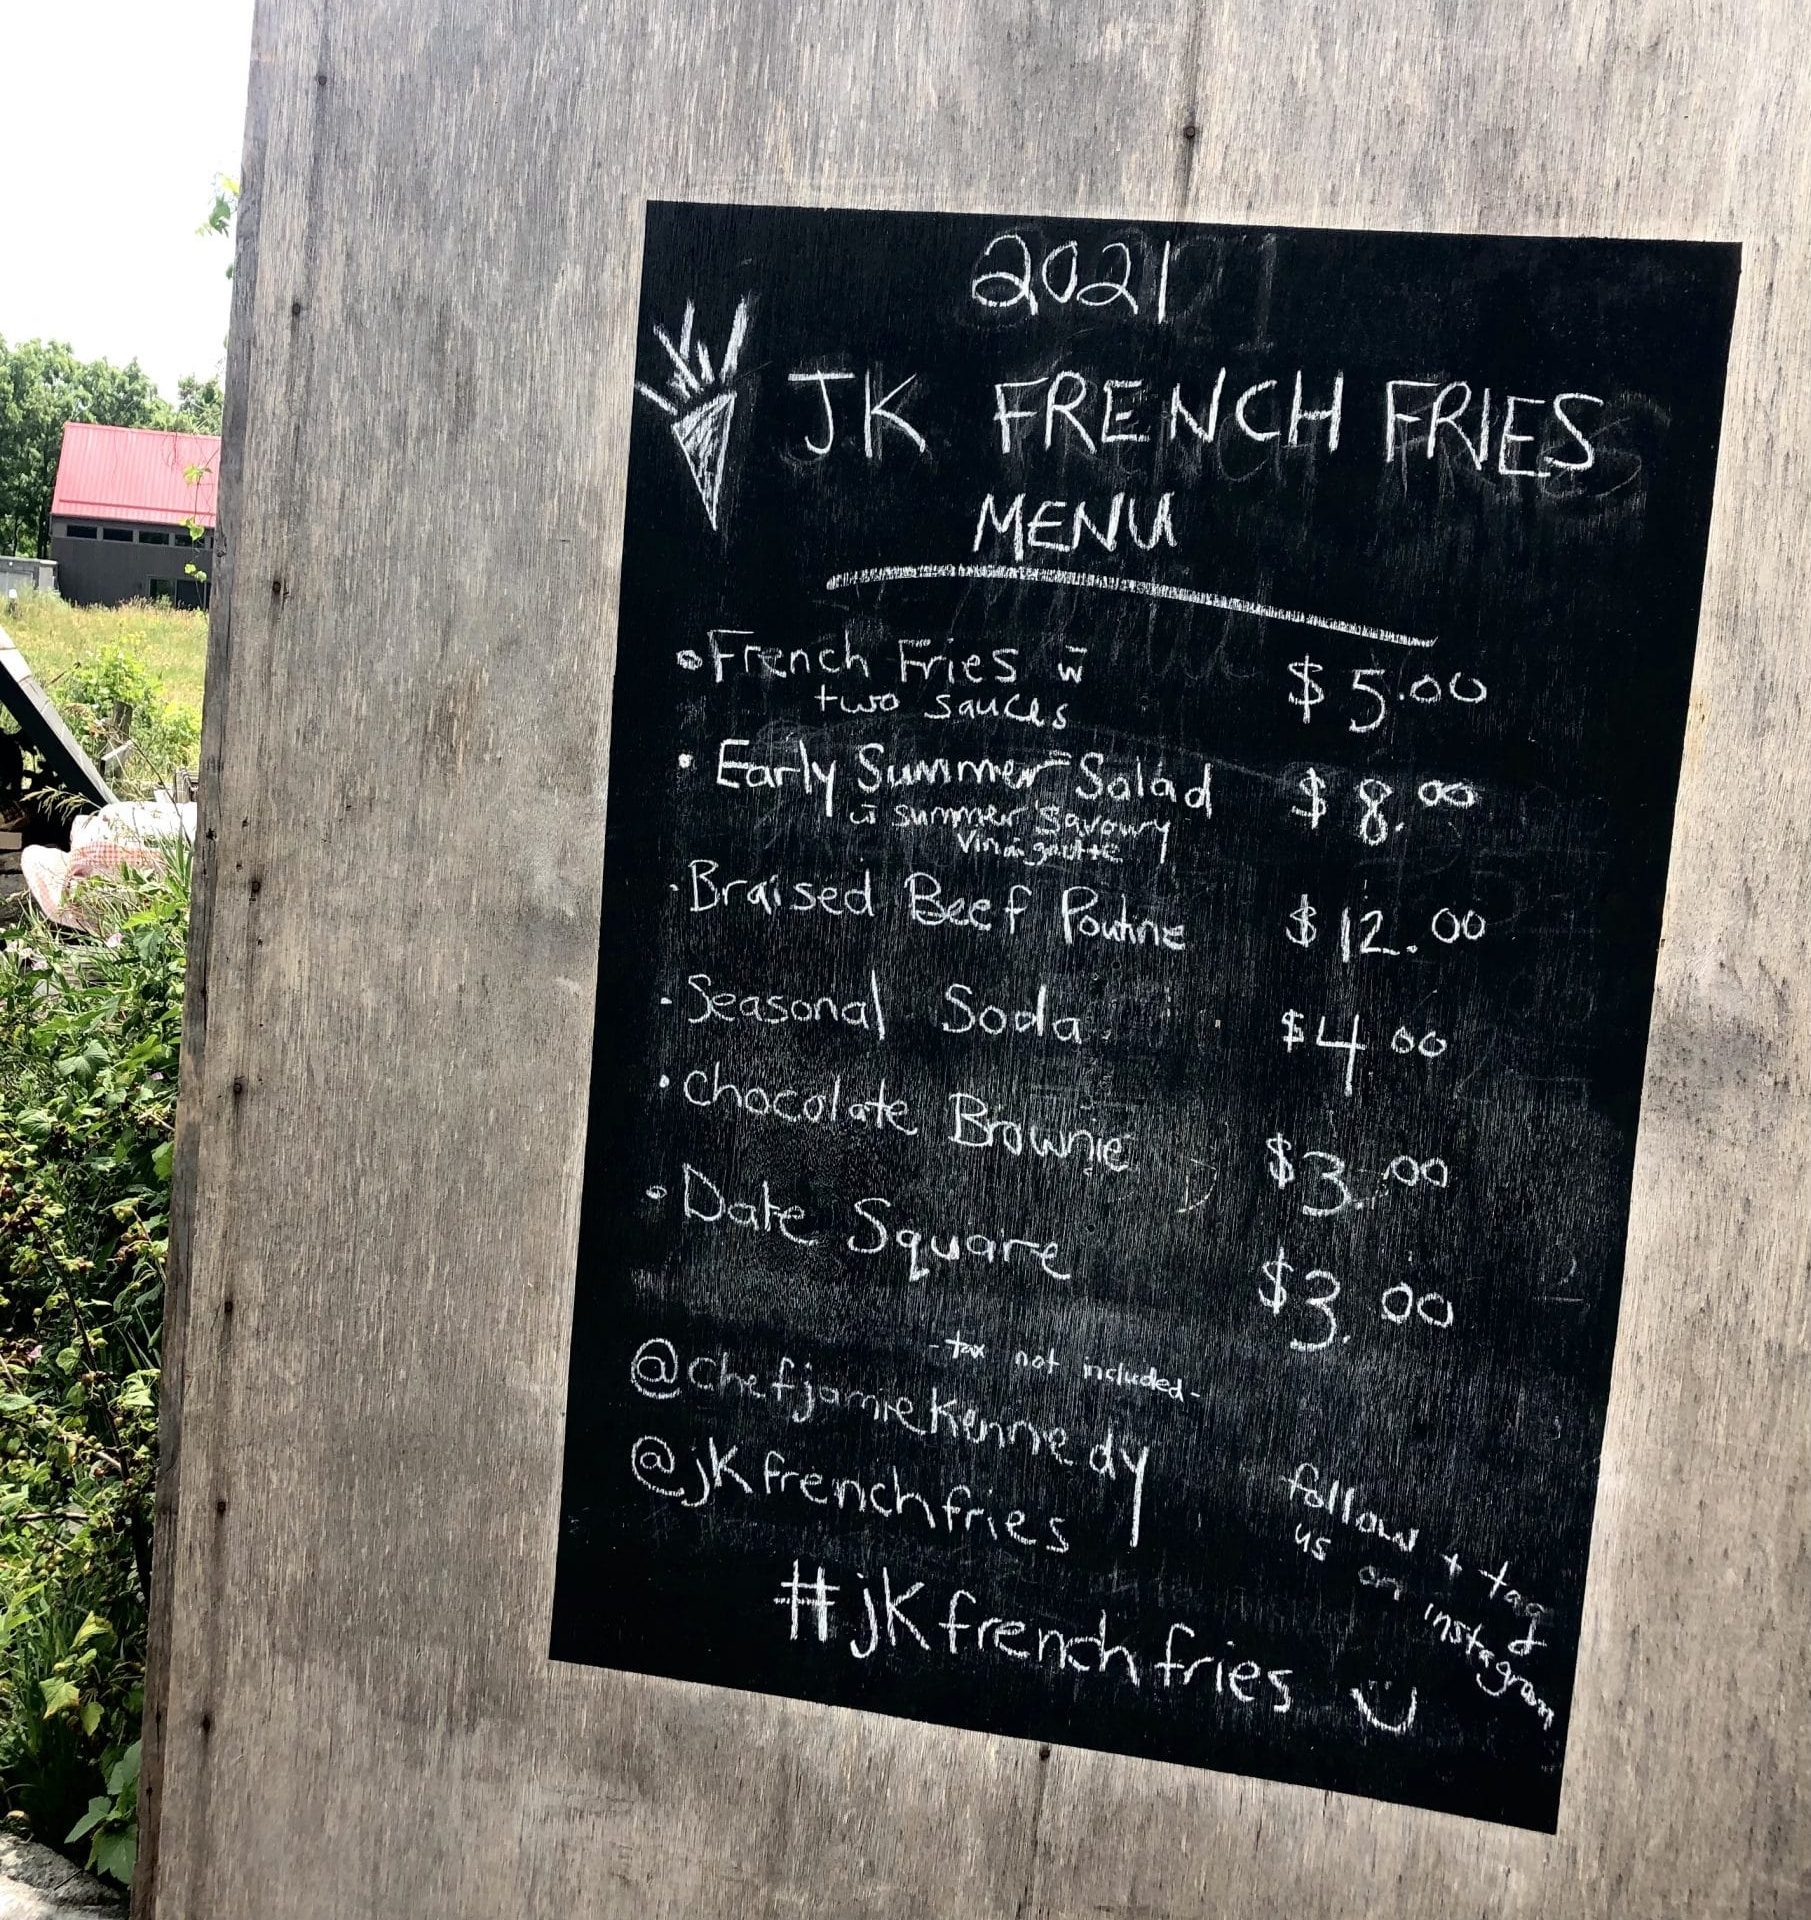 2021
JK FRENCH FRIES
MENU
French Fries w̄ $5.00
two sauces
Early Summer Salad $8.00
w̄ summer savoury
Braised Beef Poutine $12.00
Seasonal Soda $4.00
Chocolate Brownie $3.00
Date Square $3.00
-tax not included-
@chefjamiekennedy
@jKfrenchfries
follow + tag
us on instagram
#jKfrenchfries